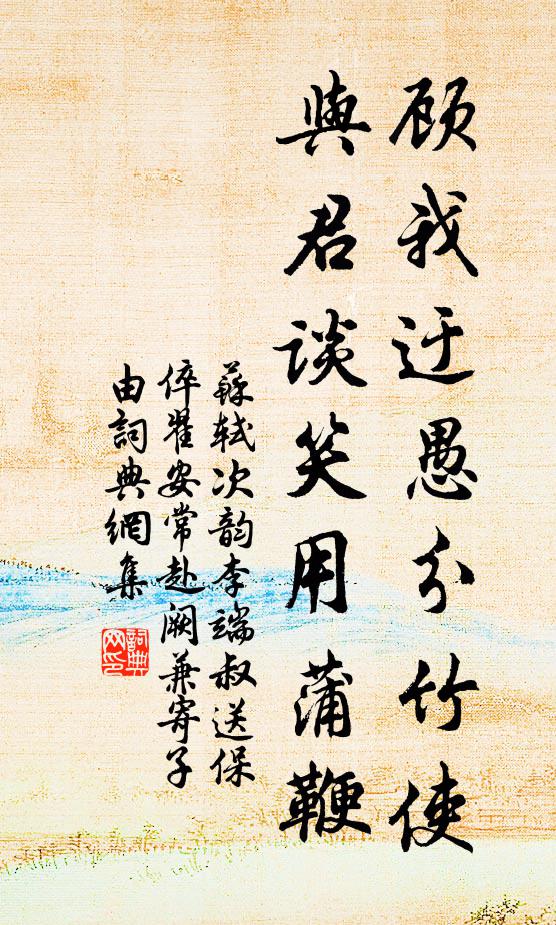 顾我迂愚分竹使
與君谈笑用蒲鞭
蘇軾次韵李端叔送保
倅翟安常赴阙兼寄子
由詞典網集
詞典網印